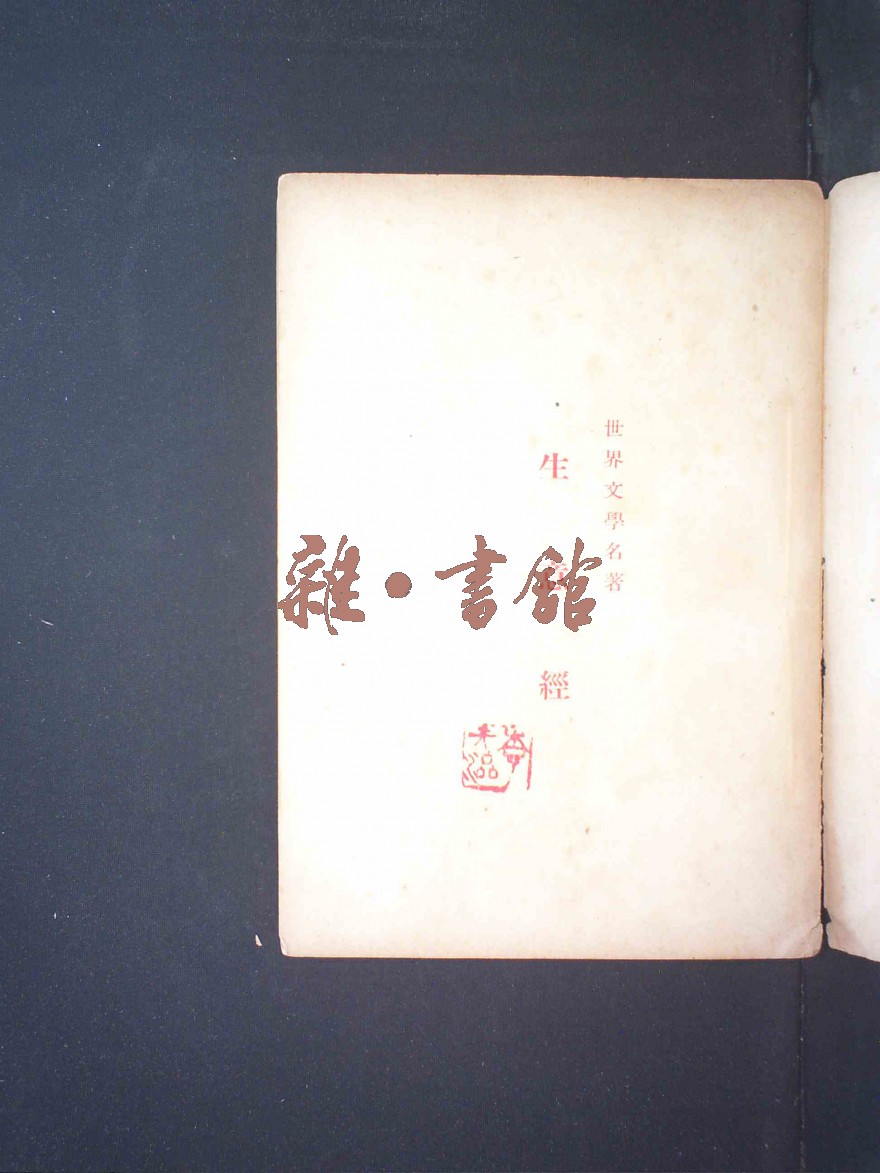 世界文學名著
生意經
雜•書館